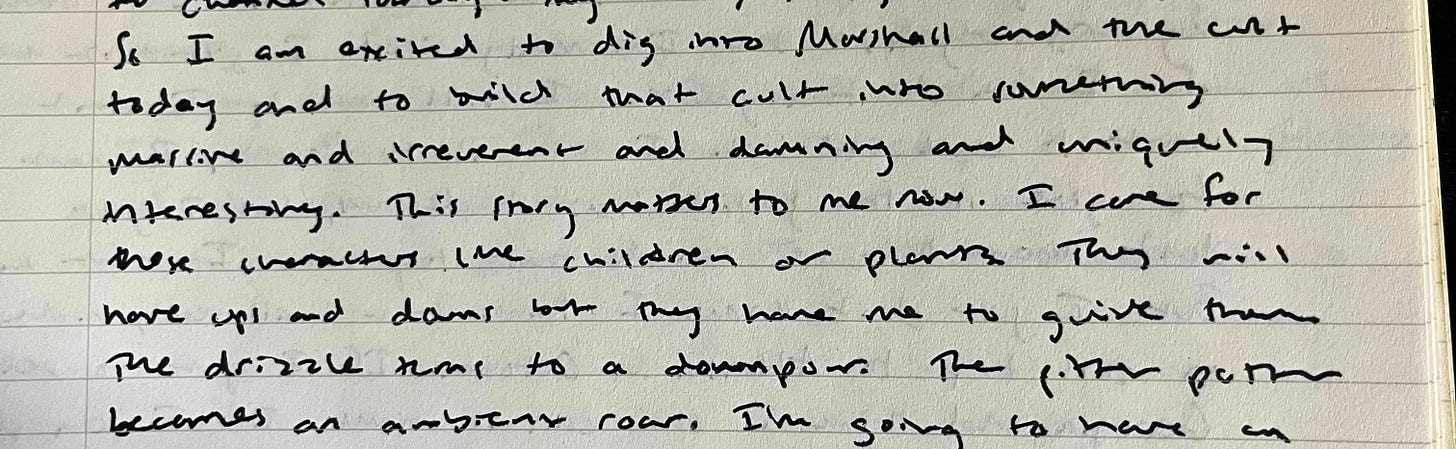 to channel
So I am excited to dig into Marshall and the cult
today and to build that cult into something
massive and irreverent and damning and uniquely
interesting. This story matters to me now. I care for
these characters like children or plants. They will
have ups and downs but they have me to guide them.
The drizzle turns to a downpour. The pitter patter
becomes an ambient roar. I'm going to have an